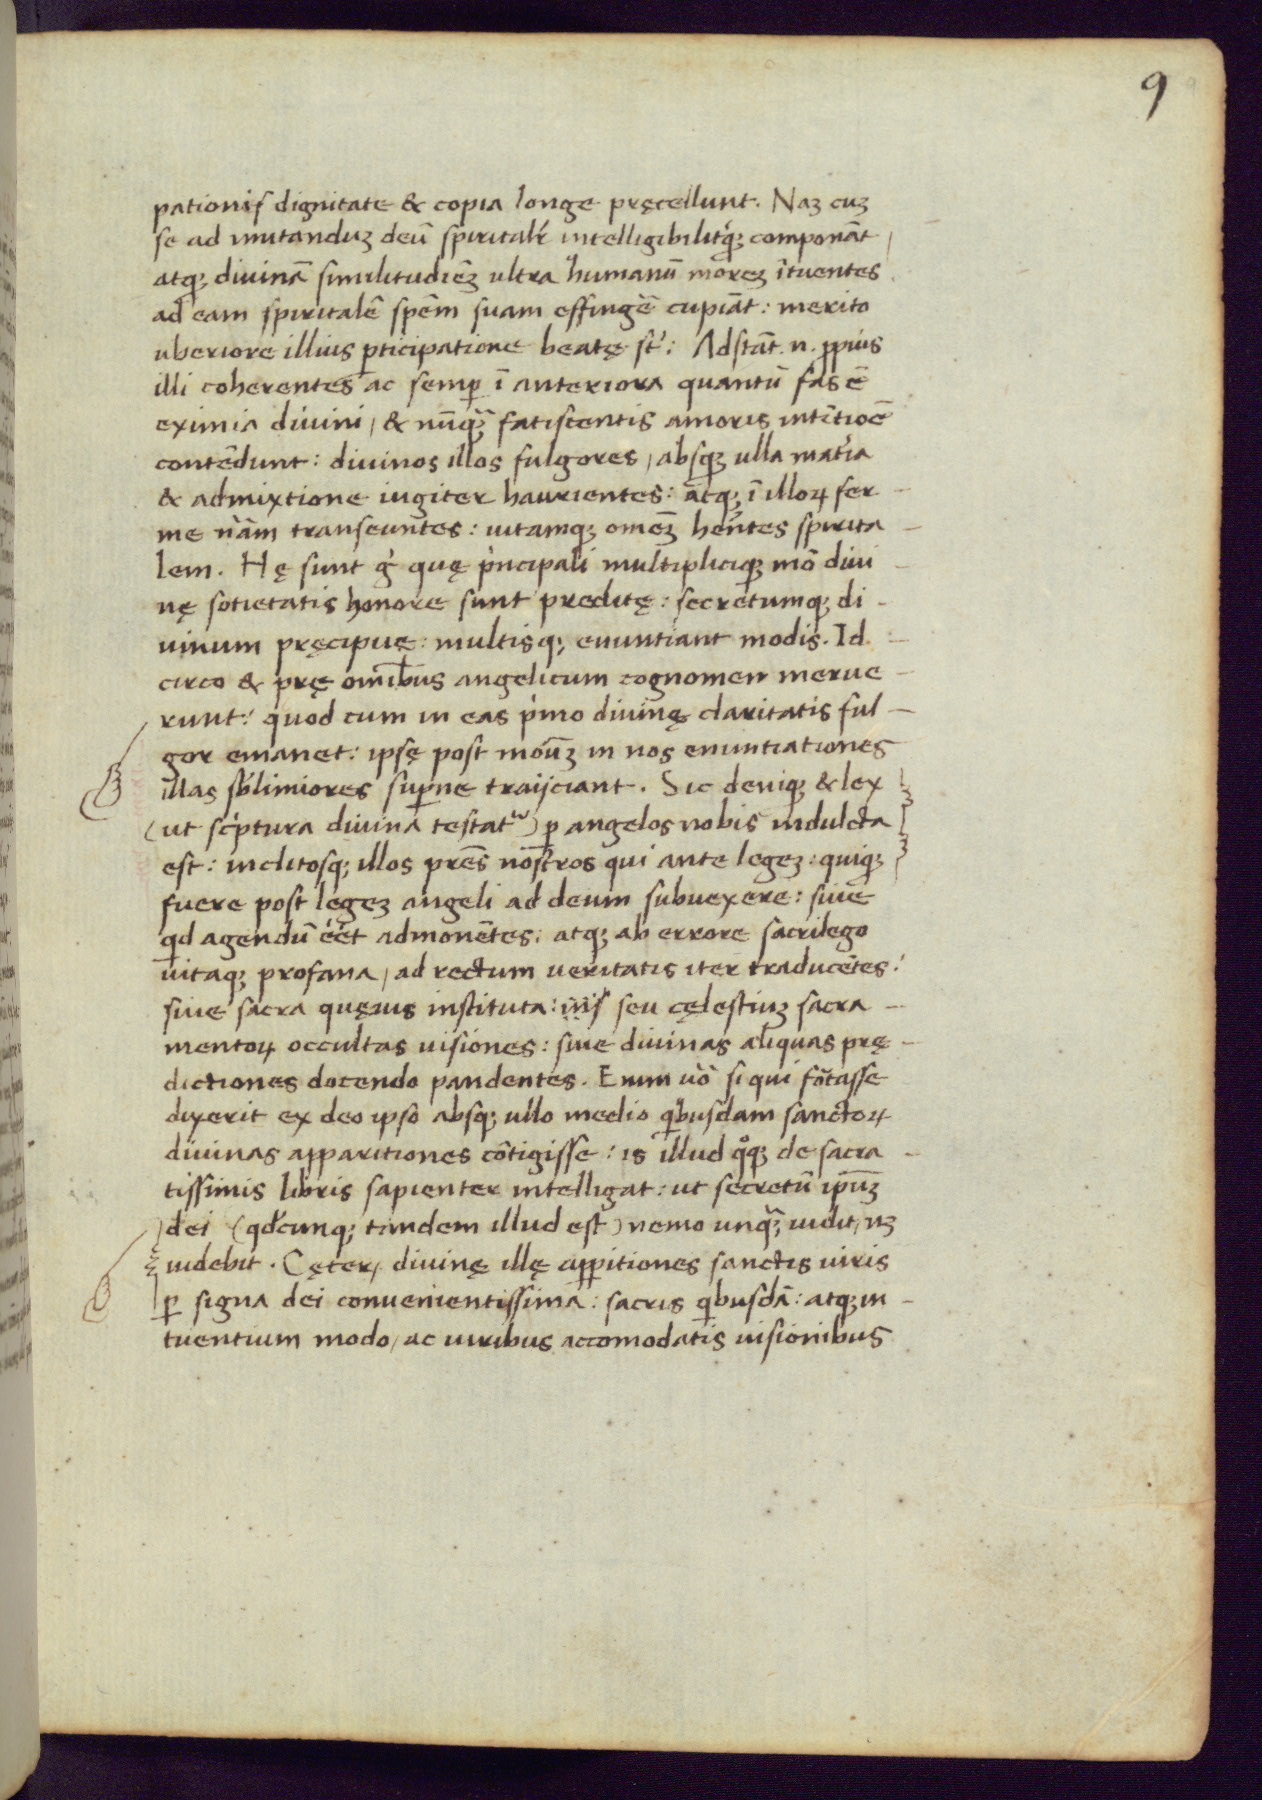 9
pationis dignitate & copia longe pręcellunt. Naꝫ cuꝫ
se ad imitanduꝫ deū spiritalr̓ intelligibilitqꝫ componāt,
atqꝫ divinā similitudiēꝫ ultra humanū moreꝫ ītuentes
ad eam spiritalē spēm suam effingē cupiāt: merito
uberiore illius ꝑticipatione beatę st̄: Adstāt .n. ꝓpius
illi coherentes ac semꝑ ī anteriora quantū fas ē
eximia divini, & nūqꝫ fatiscentis amoris intētioē
contēdunt: divinos illos fulgores, absqꝫ ulla mat̓ia
& admixtione iugiter haurientes: atqꝫ ī illoꝝ fer-
me nām transeuntes: vitamqꝫ omēꝫ hēntes spirita-
lem. Hę sunt g̓ quę p̓ncipali multipliciqꝫ mō divi-
nę sotietatis honore sunt preditę: secretumqꝫ di-
vinum pręcipuę: multisqꝫ enuntiant modis. Id-
circo & prę omībus angelicum cognomen merue-
runt: quod cum in eas p̓mo divinę claritatis ful-
gor emanet: ipsę post moūꝫ in nos enuntiationes
illas sb̓limiores suꝑne traijciant. Sic deniqꝫ & lex
(ut sc̓ptura divina testatᵘʳ) ꝑ angelos nobis indulcta
est: inclitosqꝫ illos prēs nōstros qui ante legeꝫ: quiqꝫ
fuere post legeꝫ angeli ad deum subvexere: sive
qd agendū ēēt admonētes: atqꝫ ab errore sacrilego
vitaqꝫ profana, ad rectum veritatis iter traducētes:
sive sacra quęuis instituta: seu cęlestiuꝫ sacra-
mentoꝝ occultas visiones: sive divinas aliquas prę-
dictiones docendo pandentes. Enim v̓o si qui fōtasse
dixerit ex deo ipso absqꝫ ullo medio qͥbusdam sanctoꝝ
divinas apparitiones cōtigisse: is illud qͦqꝫ de sacra-
tissimis libris sapienter intelligat: ut secretū ipūꝫ
dei (qdcunqꝫ tandem illud est) nemo unqꝫ vidit, nꝫ
videbit. Cęter, divinę illę apꝑitiones sanctis viris
ꝑ signa dei convenientissima: sacris qͥbusdā: atqꝫ in-
tuentium modo, ac viribus accomodatis visionibus